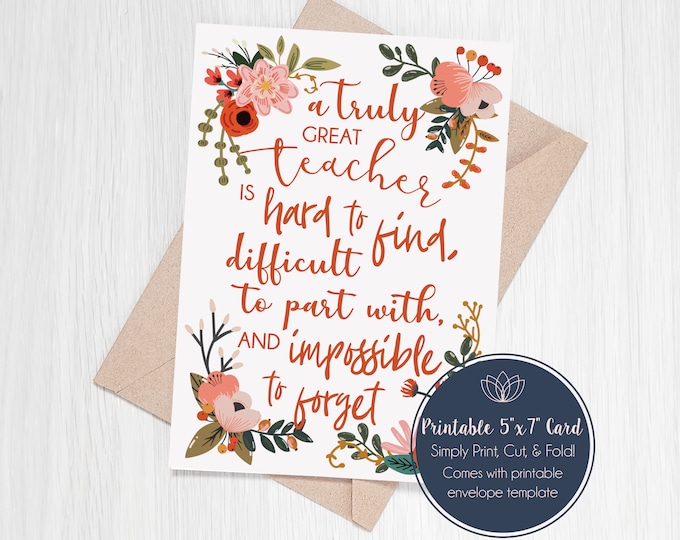 a Truly
GREAT
teacher
IS hard to find,
difficult
to part with,
AND impossible
to forget
Printable 5"x7" Card
Simply Print, Cut, & Fold!
Comes with printable
envelope template